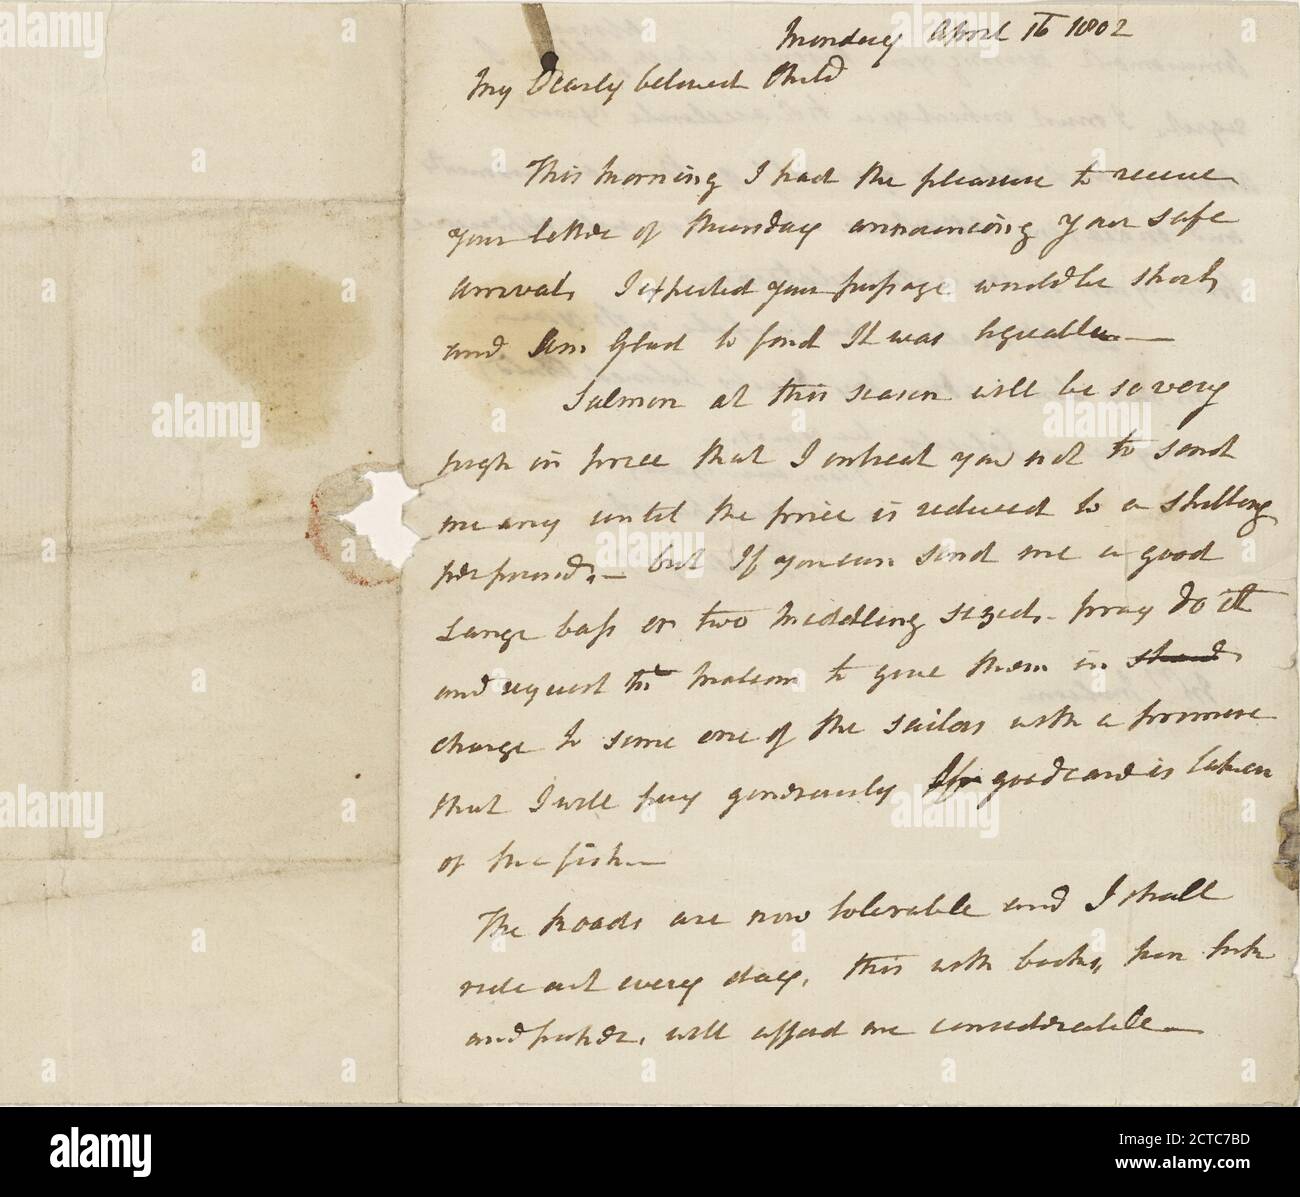 Monday April 16 1802
My Dearly beloved Child
This Morning I had the pleasure to receive
your letter of thursday announcing your safe
arrival. I expected your passage would be short,
and am Glad to find It was agreeable —
Salmon at this season will be so very
high in price that I intreat you not to send
me any until the price is reduced to a shilling
per pound, — but If you can send me a good
Large bass or two middling sized - pray do it
and request to give them in
charge to some one of the sailors with a promise
that I will pay generously If good care is taken
of the fish —
The Roads are now tolerable and I shall
ride out every day, this with books, pen Ink
and paper, will afford me considerable —
alamy
a
alamy
Image ID: 2CTC7BD
www.alamy.com